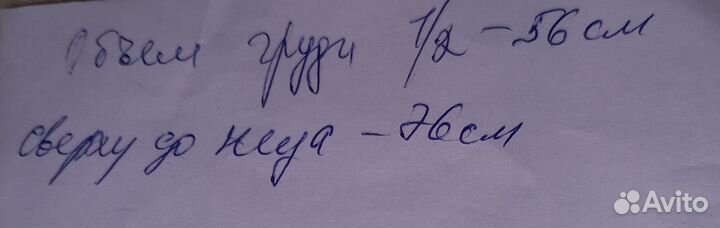 Объем груди 1/2 - 56 см
сверху до низа - 76 см
Avito